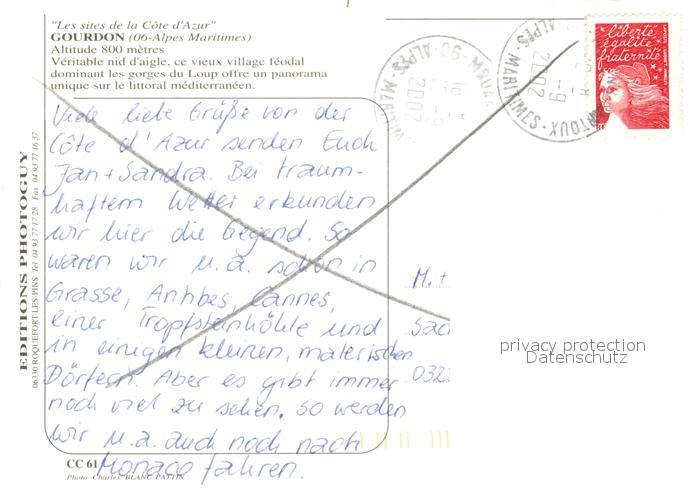 "Les sites de la Côte d'Azur"
GOURDON (06-Alpes Maritimes)
Altitude 800 mètres
Véritable nid d'aigle, ce vieux village féodal
dominant les gorges du Loup offre un panorama
unique sur le littoral méditerranéen.
Viele liebe Grüße von der
Côte d'Azur senden Euch
Jan + Sandra. Bei traum-
haftem Wetter erkunden
wir hier die Gegend. So
waren wir u.a. schon in
Grasse, Antibes, Cannes,
einer Tropfsteinhöhle und
in einigen kleinen, malerischen
Dörfern. Aber es gibt immer
noch viel zu sehen. So werden
wir u.a. auch noch nach
Monaco fahren.
EDITIONS PHOTOGUY
06330 ROQUEFORT-LES-PINS Tel 04 93 77 17 28 Fax 04 93 77 16 37
CC 61
Photo Charles BLANC-PATTIN
liberté
égalité
fraternité
RF
ALPES-MARITIMES
2002
ALPES-MARITIMES
2002
M. +
0322
privacy protection
Datenschutz